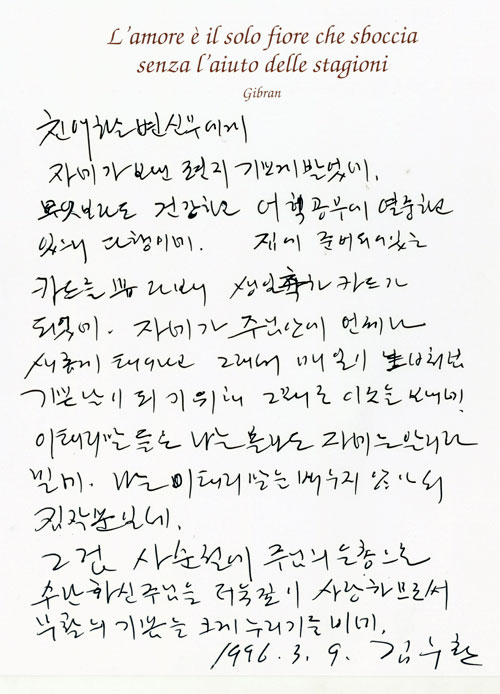 L'amore è il solo fiore che sboccia
senza l'aiuto delle stagioni
Gibran
친애하는 변신부에게
자네가 보낸 편지 기쁘게 받았네.
무엇보다도 건강하고 어학공부에 열중하고
있으니 다행이네. 집에 준비되어있는
카드를 뽑다보니 생일축하 카드가
되었네. 자네가 주님안에 언제나
새롭게 태어나고 그래서 매일이 생일처럼
기쁜 날이 되기 위해 그대로 이것을 보내네.
이태리말 뜻은 나는 몰라도 자네는 알리라
믿네. 나는 이태리말은 배우지 않아서
짐작뿐일세.
그럼, 사순절에 주님의 은총으로
수난하신 주님을 더욱 깊이 사랑하므로써
부활의 기쁨을 크게 누리기를 비네.
1996. 3. 9. 김수환